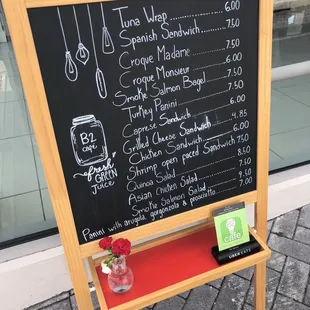 Tuna Wrap 6.00
Spanish Sandwich 7.50
Croque Madame
Croque Monsieur 7.50
Smoke Salmon Bagel 6.50
Turkey Panini 7.50
Caprese Sandwich 6.00
Grilled Cheese Sandwich 6.00
Chicken Sandwich 4.85
Shrimp open faced Sandwich 6.00
Quinoa Salad 7.50
Asian Chicken Salad 8.50
Smoke Salmon Salad 7.00
Panini with arugula, gorgonzola & prosciutto
B2
café
fresh
GREEN
JUICE
café
UBER EATS